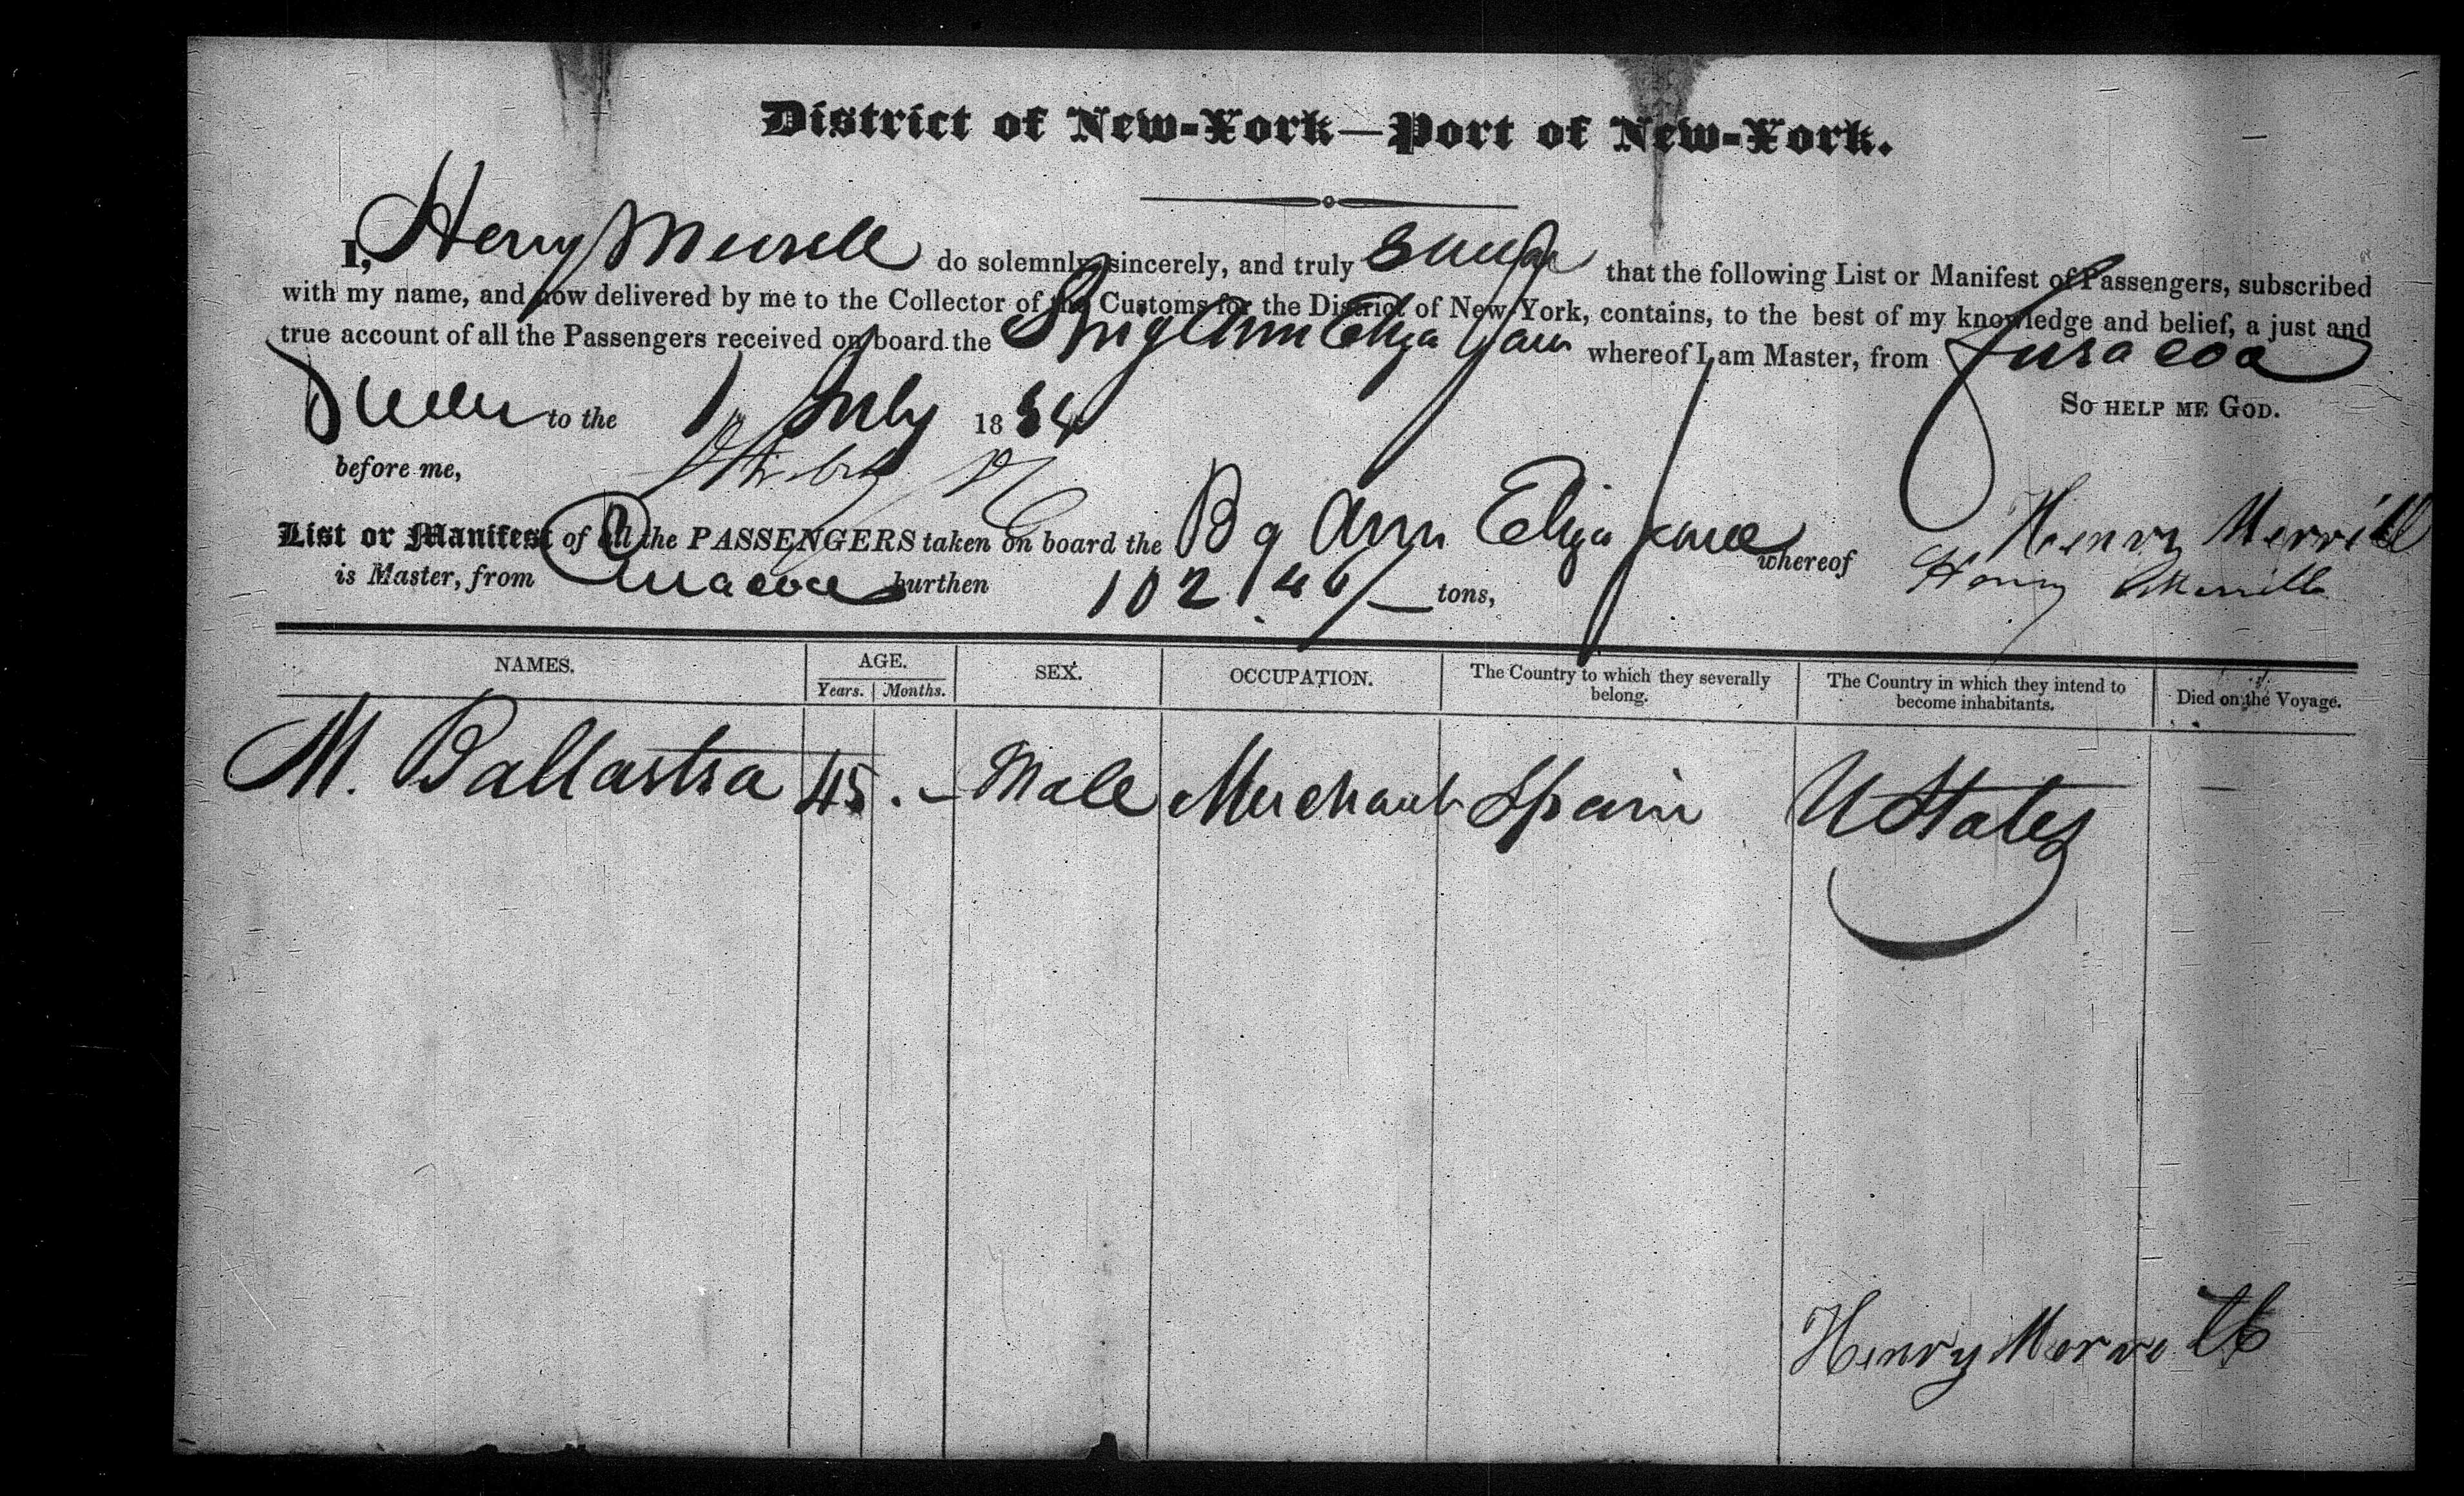 District of New-York—Port of New-York.
I, Henry Merrill do solemnly, sincerely, and truly that the following List or Manifest of Passengers, subscribed
with my name, and now delivered by me to the Collector of the Customs for the District of New-York, contains, to the best of my knowledge and belief, a just and
true account of all the Passengers received on board the Brig Ann Eliza Jane whereof I am Master, from Curacoa
to the 1 July 1834
So HELP ME GOD.
before me,
Henry Merrill
List or Manifest of all the PASSENGERS taken on board the Bg Ann Eliza Jane whereof Henry Merrill
is Master, from Curacoa burthen 102 tons,
NAMES. AGE. SEX. OCCUPATION. The Country to which they severally belong. The Country in which they intend to become inhabitants. Died on the Voyage.
Years. Months.
M. Ballastra 45 . – Male Merchant Spain U States —
Henry Merrill